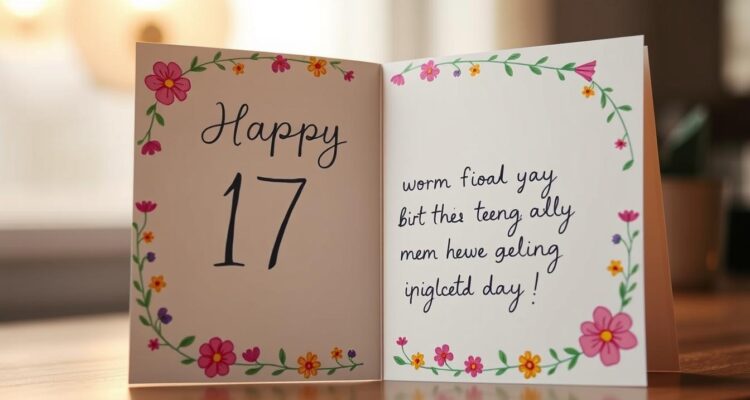 Happy
17
worm fioal yay
Birt thes teeng ally
mem hewe geling
ipiglcetd day !